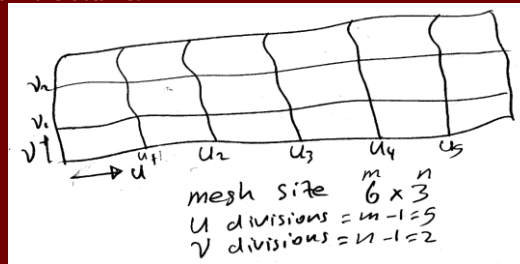 v₂
v₁
v
u
u₁ u₂ u₃ u₄ u₅
m n
mesh size 6 × 3
u divisions = m-1=5
v divisions = n-1=2